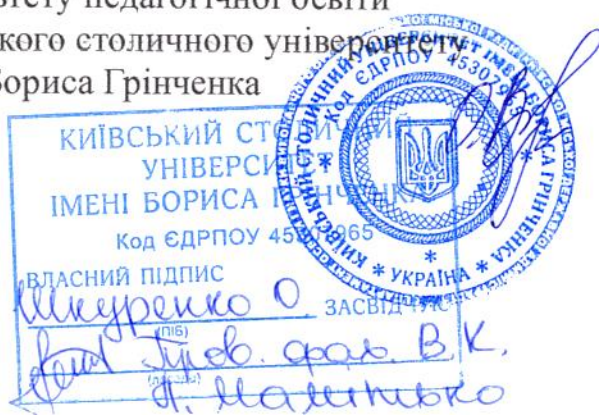 тету педагогічної освіти
кого столичного університету
Бориса Грінченка
КИЇВСЬКИЙ СТОЛИЧНИЙ
УНІВЕРСИТЕТ
ІМЕНІ БОРИСА ГРІНЧЕНКА
Код ЄДРПОУ
ВЛАСНИЙ ПІДПИС
Шкуренко О.
ЗАСВІДЧУЮ
(ПІБ)
Пров. фах. В.К.
(посада)
КИЇВСЬКИЙ СТОЛИЧНИЙ УНІВЕРСИТЕТ ІМЕНІ БОРИСА ГРІНЧЕНКА
Код ЄДРПОУ
* УКРАЇНА *